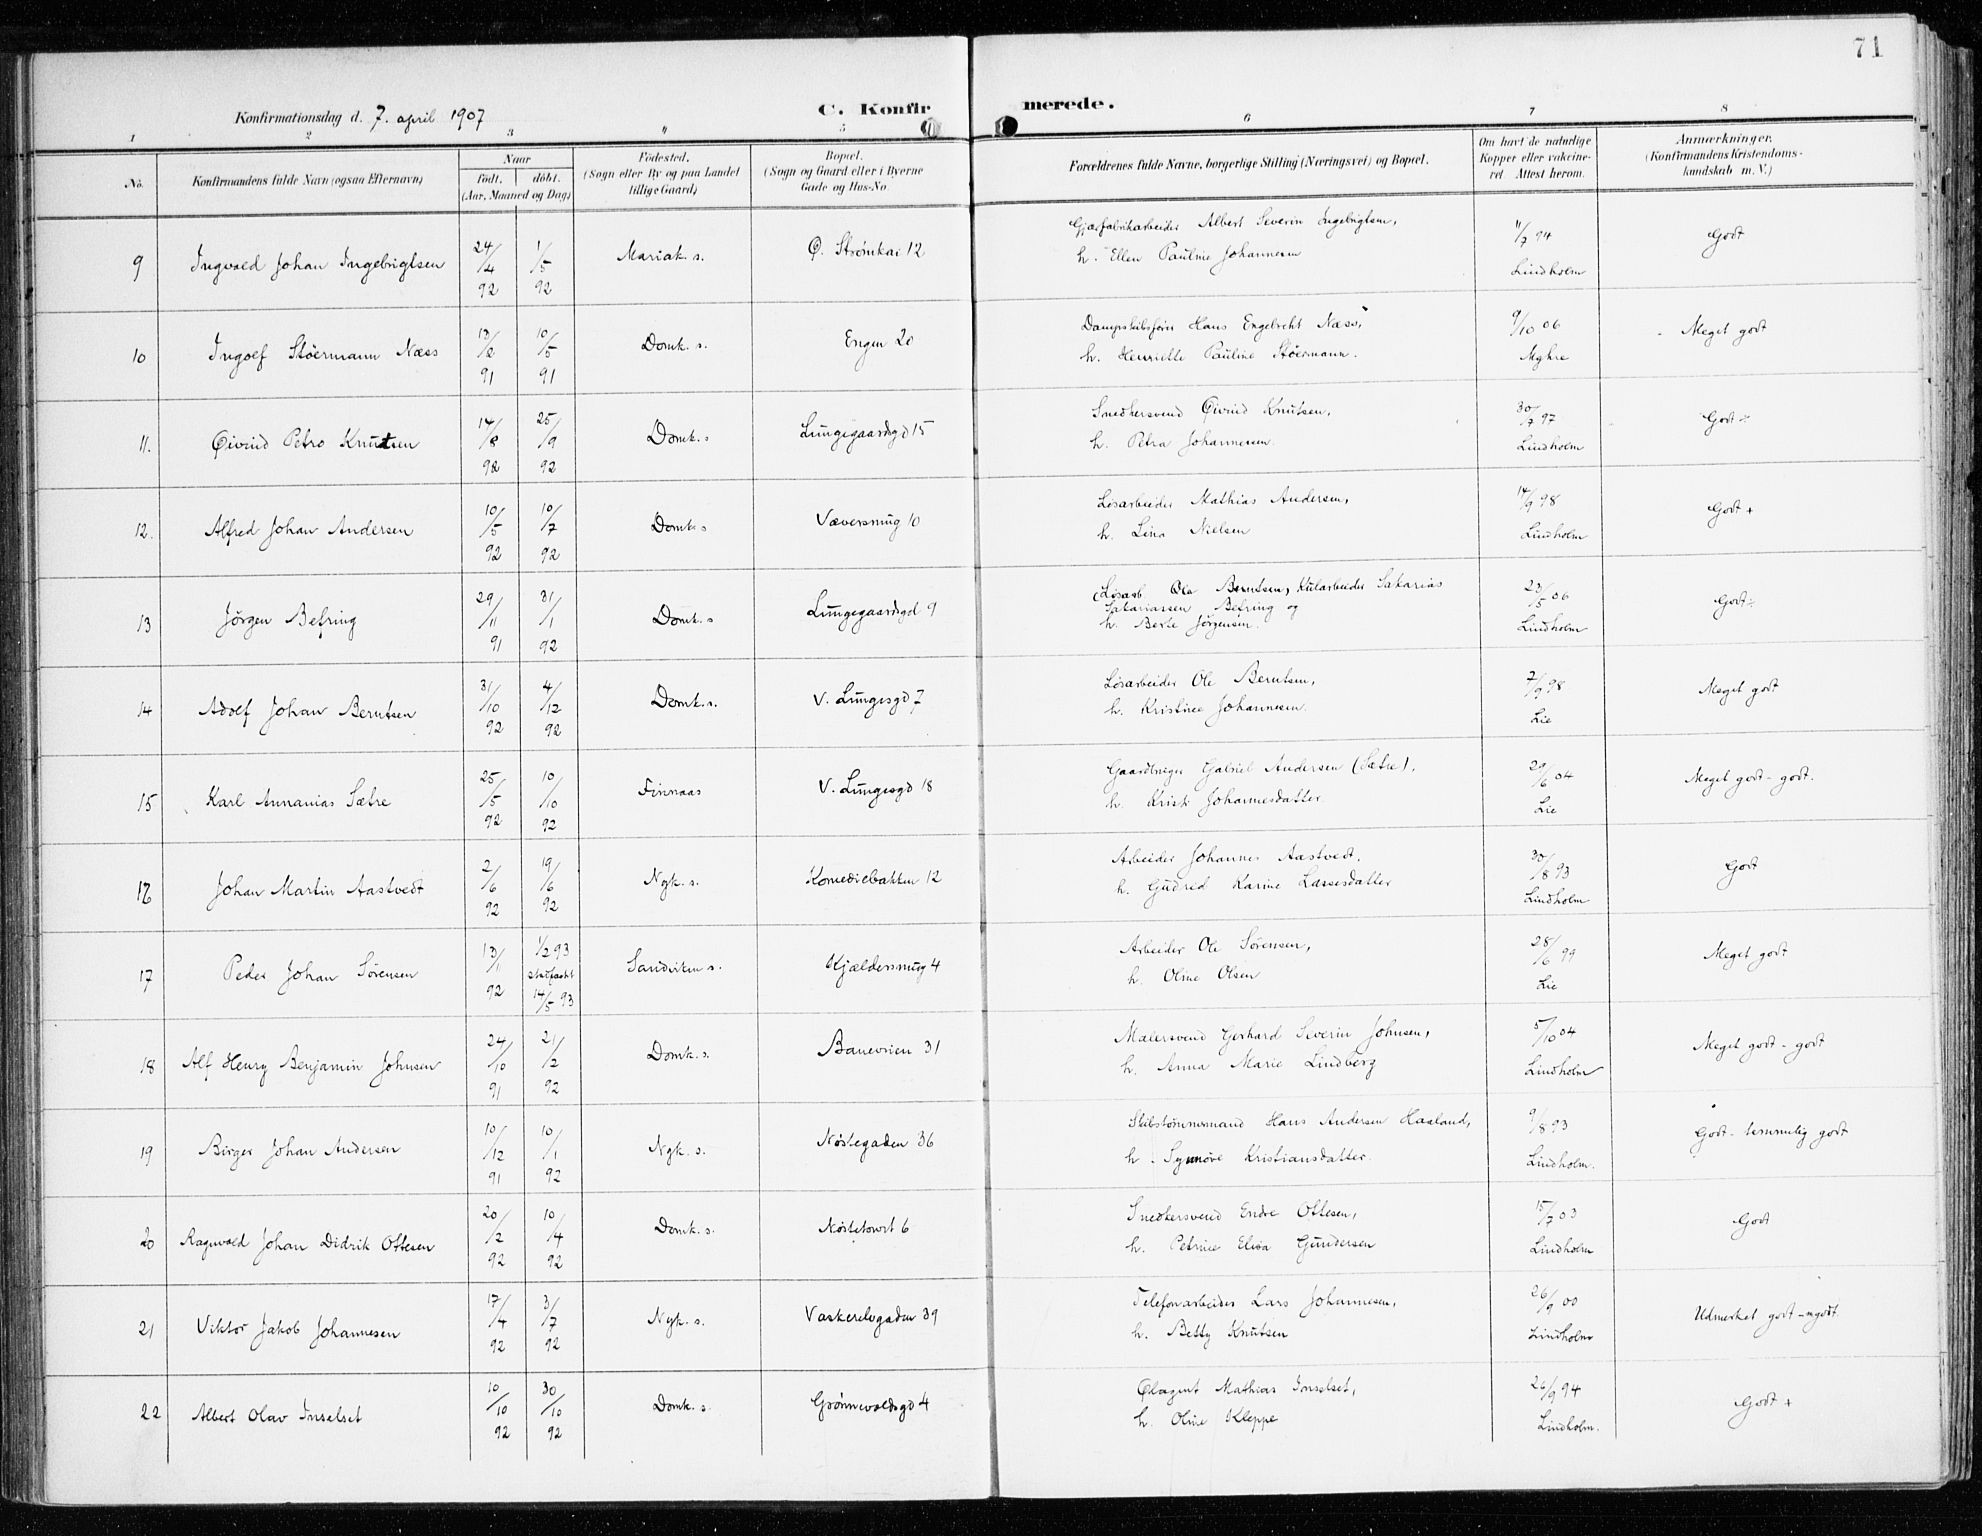 71
Konfirmationsdag d. 7. april 1907
C. Konfir
merede.
1 2 3 4 5 6 7 8
No.
Konfirmandens fulde Navn (ogsaa Efternavn)
Naar
født. døbt.
(Aar, Maaned og Dag)
Fødested.
(Sogn eller By og paa Landet
tillige Gaard)
Bopæl.
(Sogn og Gaard eller i Byerne
Gade og Hus-No.
Forældrenes fulde Navne, borgerlige Stilling (Næringsvei) og Bopæl.
Om havt de naturlige
Kopper eller vakcine-
ret. Attest herom.
Anmærkninger.
(Konfirmandens Kristendoms-
kundskab m. V.)
9 Ingvald Johan Ingebrigtsen 24/4 92 1/5 92 Mariak. s. Ø. Strømkai 12
Gjærfabrikarbeider Albert Severin Ingebrigtsen,
h. Ellen Pauline Johannesen
11/7 94
Lindholm
Godt
10 Ingolf Støermann Næss 13/2 91 10/5 91 Domk. s. Engen 20
Dampskibsfører Hans Engelbrecht Næss,
h. Henriette Pauline Støermann.
9/10 06
Myhre
Meget godt
11. Øivind Petro Knutsen 14/8 92 25/9 92 Domk. s Lungegaardsgd 15
Snedkersvend Øivind Knutsen,
h. Petra Johannesen.
30/7 97
Lindholm
Godt ÷
12. Alfred Johan Andersen 10/5 92 10/7 92 Domk. s Væversmug 10
Løsarbeider Mathias Andersen,
h. Lina Nielsen
14/9 98
Lindholm
Godt +
13 Jørgen Befring 29/11 91 31/1 92 Domk. s Lungegaardsgd 9
(Løsarb. Ole Berntsen, Kularbeider Sakarias
Sakariassen Befring og
h. Berte Jørgensen.
23/5 06
Lindholm
Godt ÷
14 Adolf Johan Berntsen 31/10 92 4/12 92 Domk. s. V. Lungesgd 7
Løsarbeider Ole Berntsen,
h. Kristine Johannesen.
7/9 98
Lie
Meget godt
15 Karl Annanias Sætre 25/5 92 10/10 92 Finnaas V. Lungesgd 18
Gaardbruger Gabriel Andersen (Sætre),
h. Kristi Johannesdatter.
29/6 04
Lie
Meget godt - godt.
16 Johan Martin Aastvedt 2/6 92 19/6 92 Nyk. s. Komediebakken 12
Arbeider Johannes Aastvedt.
h. Gudrid Karine Lassesdatter
30/8 93
Lindholm
Godt
17 Peder Johan Sørensen 13/1 92 1/2 93
stadfæstet
14/5 93
Sandviken s. Kjældersmug 4
Arbeider Ole Sørensen,
h. Oline Olsen
28/6 99
Lie
Meget godt
18 Alf Henry Benjamin Johnsen 24/10 91 21/2 92 Domk. s. Baneveien 31
Malersvend Gerhard Severin Johnsen,
h. Anna Marie Lindberg
5/10 04
Lindholm
Meget godt - godt
19 Birger Johan Andersen 10/12 91 10/1 92 Nyk. s. Nøstegaden 36
Skibstømmermand Hans Andersen Haaland,
h. Synnøve Kristiansdatter.
9/8 93
Lindholm.
Godt - temmelig godt
20 Ragnvald Johan Didrik Ottesen 20/2 92 10/4 92 Domk. s. Nøstetorvt 6
Snedkersvend Endre Ottesen,
h. Petrine Elisa Gundersen
15/7 03
Lindholm
Godt
21 Viktor Jakob Johannesen 17/4 92 3/7 92 Nyk. s. Vaskerelvgaden 39
Telefonarbeider Lars Johannesen,
h. Betty Knutsen
26/9 00
Lindholm
Udmerket godt - mgodt
22 Albert Olav Inselset 10/10 92 30/10 92 Domk. s. Grønnevoldsgd 4
Ølagent Mathias Inselset,
h. Oline Kleppe
26/9 94
Lindholm.
Godt +